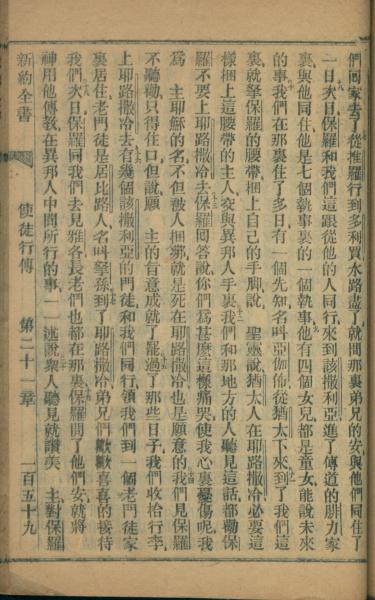 們回家去了從推羅行到多利買水路盡了就問那裏弟兄的安與他們同住了
一日次日保羅和我們這跟從他的人同行來到該撒利亞進了傳道的腓力家
裏與他同住他是七個執事裏的一個執事他有四個女兒都是童女能說未來
的事我們在那裏住了多日有一個先知名叫亞伽佈從猶太下來到了我們這
裏就拏保羅的腰帶捆上自己的手脚說 聖靈說猶太人在耶路撒冷必要這
樣捆上這腰帶的主人交與異邦人手裏我們和那地方的人聽見這話都勸保
羅不要上耶路撒冷去保羅回答說你們爲甚麽這樣痛哭使我心裏憂傷呢我
爲 主耶穌的名不但被人捆鄉就是死在耶路撒冷也是願意的我們見保羅
不聽勸只得住口但說願 主的旨意成就了罷過了那些日子我們收拾行李
上耶路撒冷去有幾個該撒利亞的門徒和我們同行領我們到一個老門徒家
裏居住老門徒是居比路人名叫拏孫到了耶路撒冷弟兄們歡歡喜喜的接待
我們次日保羅同我們去見雅各長老們也都在那裏保羅問了他們安就將
神用他傳教在異邦人中間所行的事一一述說衆人聽見就讚美 主對保羅
新約全書 使徒行傳 第二十一章 一百五十九